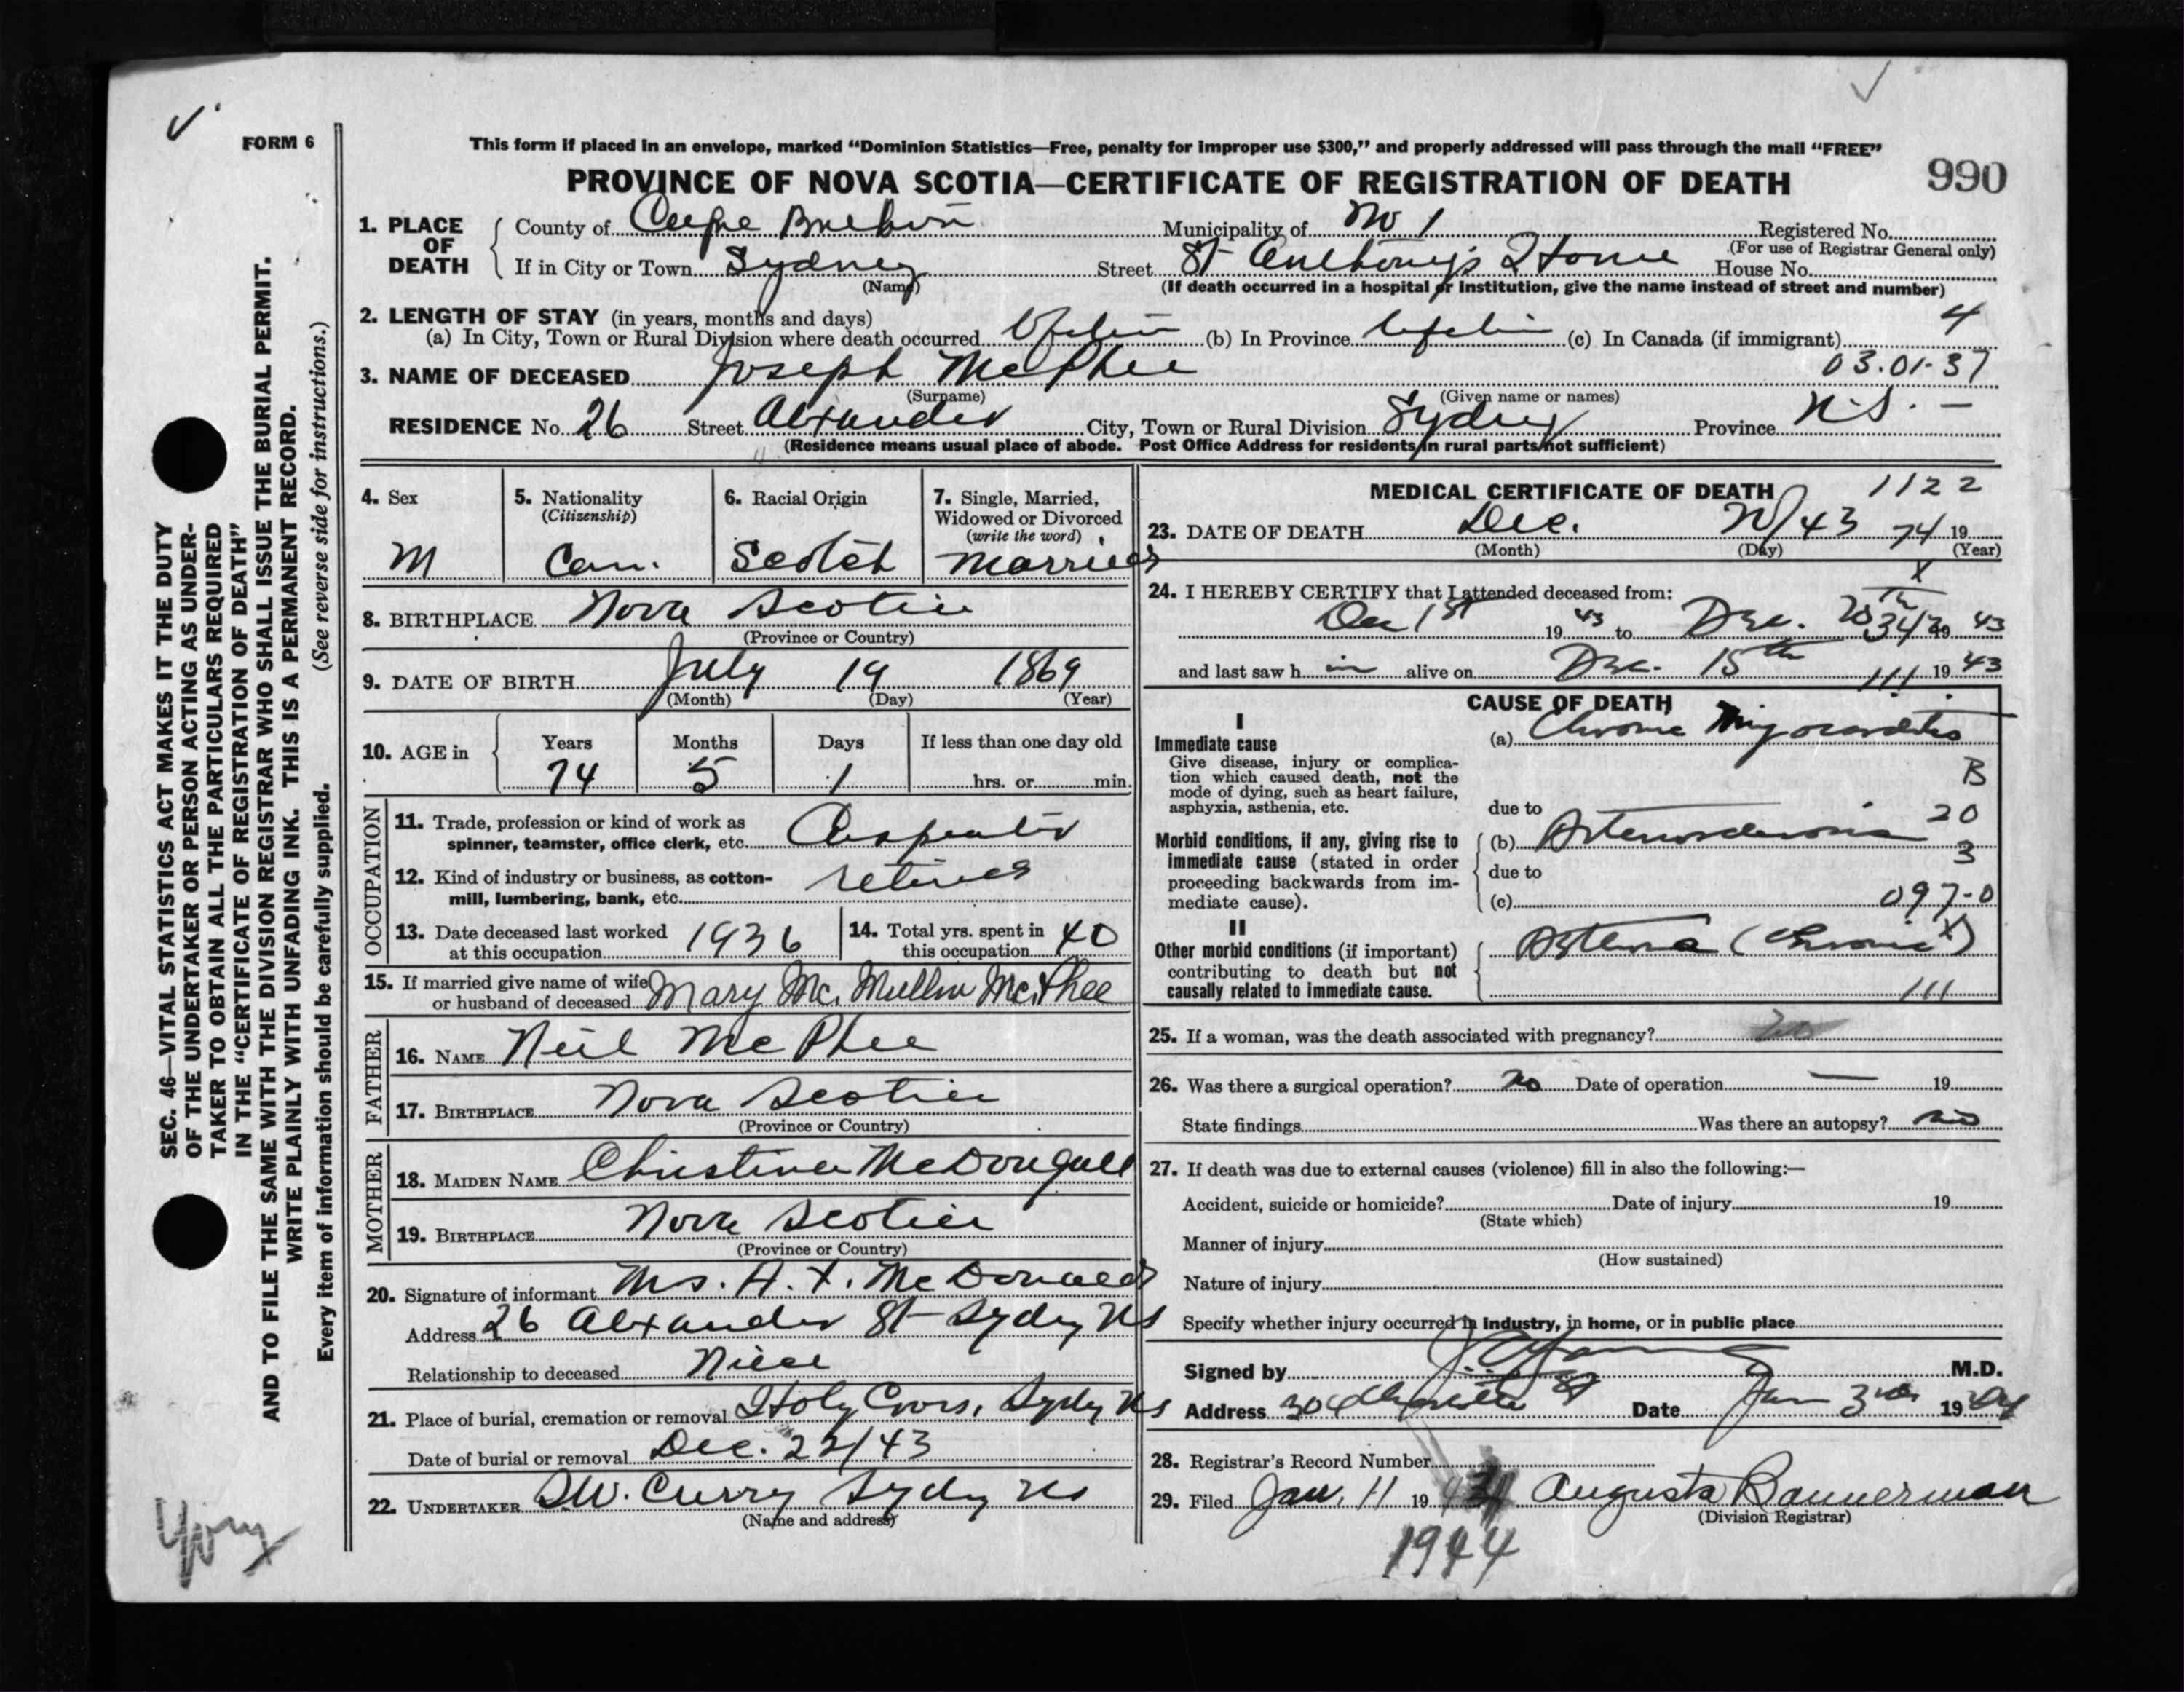 FORM 6
This form if placed in an envelope, marked “Dominion Statistics—Free, penalty for improper use $300,” and properly addressed will pass through the mail “FREE”
PROVINCE OF NOVA SCOTIA—CERTIFICATE OF REGISTRATION OF DEATH
990
1. PLACE OF DEATH
County of Cape Breton Municipality of No 1 Registered No.
(For use of Registrar General only)
If in City or Town Sydney Street St Anthony's Home House No.
(Name) (If death occurred in a hospital or institution, give the name instead of street and number)
2. LENGTH OF STAY (in years, months and days) 4
(a) In City, Town or Rural Division where death occurred lifetime (b) In Province lifetime (c) In Canada (if immigrant)
3. NAME OF DECEASED Joseph McPhee 03.01.37
(Surname) (Given name or names)
RESIDENCE No. 26 Street Alexander City, Town or Rural Division Sydney Province N.S. —
(Residence means usual place of abode. Post Office Address for residents in rural parts not sufficient)
4. Sex
M
5. Nationality
(Citizenship)
Can.
6. Racial Origin
Scotch
7. Single, Married,
Widowed or Divorced
(write the word)
Married
8. BIRTHPLACE Nova Scotia
(Province or Country)
9. DATE OF BIRTH July 19 1869
(Month) (Day) (Year)
10. AGE in
Years Months Days If less than one day old
74 5 1 hrs. or min.
OCCUPATION
11. Trade, profession or kind of work as
spinner, teamster, office clerk, etc. Carpenter
12. Kind of industry or business, as cotton-
mill, lumbering, bank, etc. retired
13. Date deceased last worked
at this occupation 1936
14. Total yrs. spent in
this occupation 40
15. If married give name of wife
or husband of deceased Mary McMullin McPhee
FATHER
16. NAME Neil McPhee
17. BIRTHPLACE Nova Scotia
(Province or Country)
MOTHER
18. MAIDEN NAME Christina McDougall
19. BIRTHPLACE Nova Scotia
(Province or Country)
20. Signature of informant Mrs. A. X. McDonald
Address 26 Alexander St Sydney NS
Relationship to deceased Niece
21. Place of burial, cremation or removal Holy Cross, Sydney NS
Date of burial or removal Dec. 22/43
22. UNDERTAKER Curry Sydney NS
(Name and address)
MEDICAL CERTIFICATE OF DEATH 1122
23. DATE OF DEATH Dec. 20/43 74 19
(Month) (Day) (Year)
X
24. I HEREBY CERTIFY that I attended deceased from:
Dec 1st 19 43 to Dec. 20th 19 43
and last saw h im alive on Dec. 15th 111 19 43
CAUSE OF DEATH
I
Immediate cause
Give disease, injury or complica-
tion which caused death, not the
mode of dying, such as heart failure,
asphyxia, asthenia, etc.
(a) Chronic Myocarditis
B
due to
20
Morbid conditions, if any, giving rise to
immediate cause (stated in order
proceeding backwards from im-
mediate cause).
(b) Arteriosclerosis
3
due to
(c) 097-0
X
II
Other morbid conditions (if important)
contributing to death but not
causally related to immediate cause.
Asthma (Chronic)
111
25. If a woman, was the death associated with pregnancy? no
26. Was there a surgical operation? no Date of operation — 19
State findings Was there an autopsy? no
27. If death was due to external causes (violence) fill in also the following:—
Accident, suicide or homicide? Date of injury 19
(State which)
Manner of injury
(How sustained)
Nature of injury
Specify whether injury occurred in industry, in home, or in public place
Signed by M.D.
Address 304 Charlotte St Date Jan 3rd 19 44
28. Registrar's Record Number
29. Filed Jan. 11 19 Augusta Bannerman
(Division Registrar)
1944
SEC. 46—VITAL STATISTICS ACT MAKES IT THE DUTY
OF THE UNDERTAKER OR PERSON ACTING AS UNDER-
TAKER TO OBTAIN ALL THE PARTICULARS REQUIRED
IN THE “CERTIFICATE OF REGISTRATION OF DEATH”
AND TO FILE THE SAME WITH THE DIVISION REGISTRAR WHO SHALL ISSUE THE BURIAL PERMIT.
WRITE PLAINLY WITH UNFADING INK. THIS IS A PERMANENT RECORD.
Every item of information should be carefully supplied. (See reverse side for instructions.)